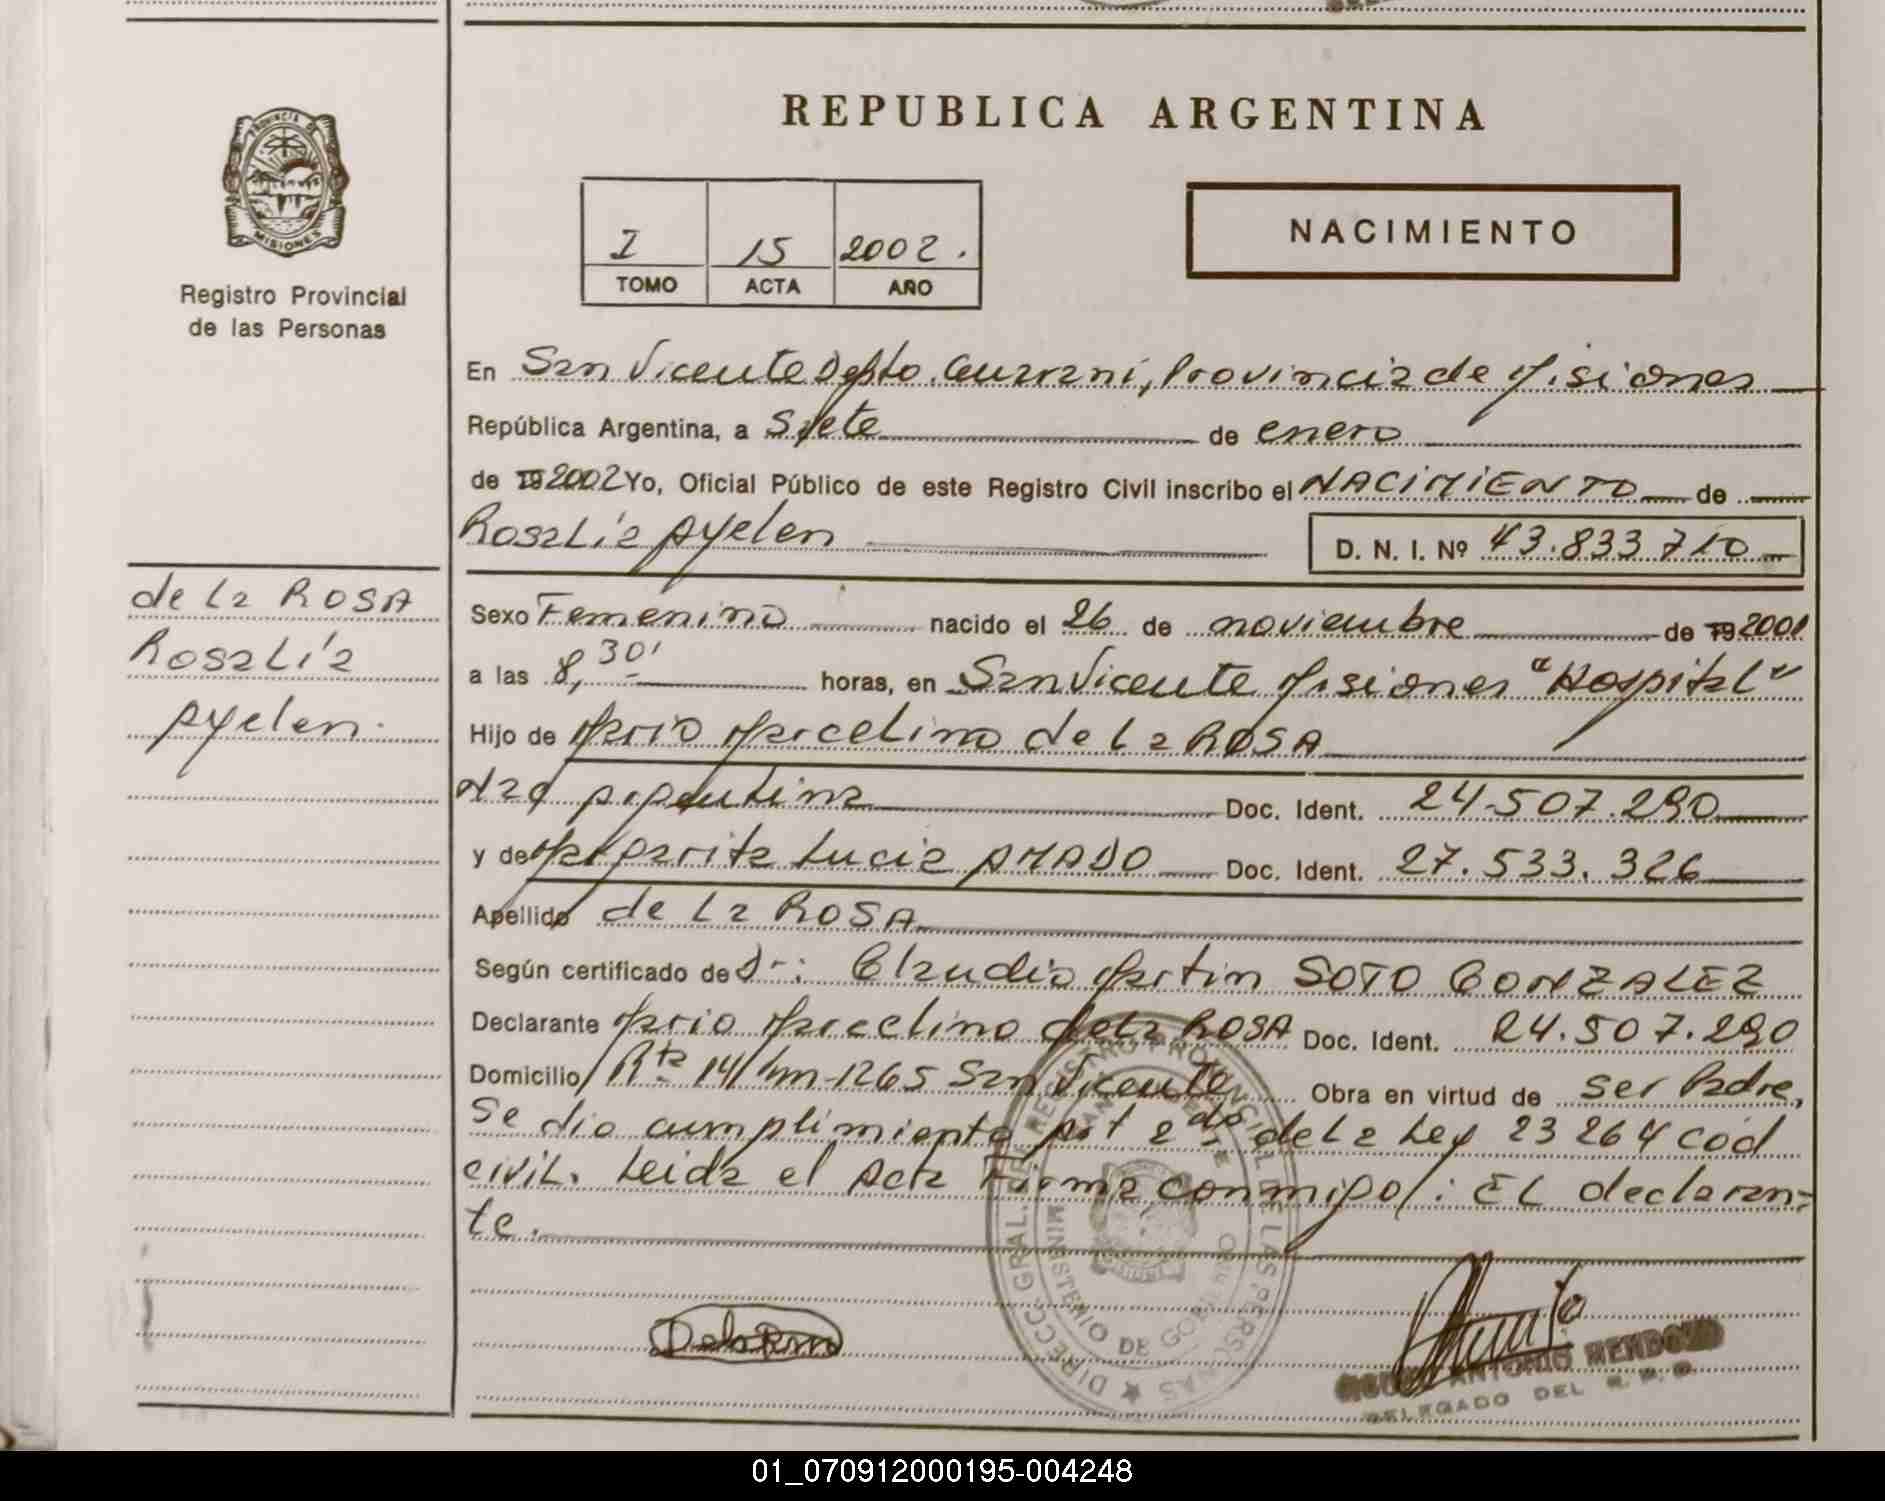 REPUBLICA ARGENTINA
PROVINCIA DE
MISIONES
Registro Provincial
de las Personas
I 15 2002.
TOMO ACTA AÑO
NACIMIENTO
En San Vicente Dpto. Guaraní, Provincia de Misiones
República Argentina, a Siete de enero
de 19 2002 Yo, Oficial Público de este Registro Civil inscribo el NACIMIENTO de
Rosalía Ayelen D. N. I. Nº 43.833.710
de la ROSA
Rosalía
Ayelen.
Sexo Femenino nacido el 26 de noviembre de 19 2001
a las 8,30' horas, en San Vicente Misiones "Hospital"
Hijo de Mario Marcelino de la ROSA
Nac Argentina Doc. Ident. 24.507.290
y de Margarita Lucia AMADO Doc. Ident. 27.533.326
Apellido de la ROSA
Según certificado de Dr: Claudio Martin SOTO GONZALEZ
Declarante Mario Marcelino de la ROSA Doc. Ident. 24.507.290
Domicilio Rta 14 km 1265 San Vicente Obra en virtud de ser Padre,
Se dio cumplimiento Art 2do de la Ley 23264 cod
civil. Leida el Acta Firma conmigo: EL declaran-
te.
DIRECC. GRAL. DE REGISTRO PROVINCIAL DE LAS PERSONAS
MINISTERIO DE GOBIERNO
ANTONIO MENDOZA
DELEGADO DEL R. P. P.
01_070912000195-004248